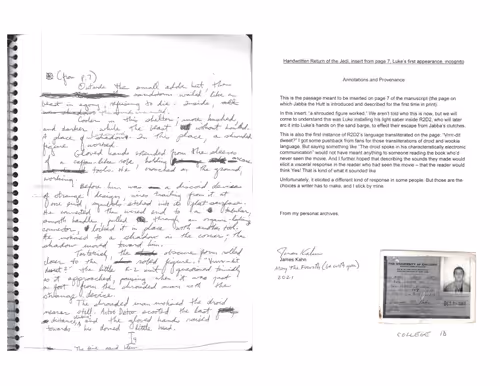 (from p.7)
Outside the small adobe hut, the
sandstorm wailed like a
beast in agony, refusing to die. Inside,
in this shelter; more hushed,
and darker, while the beast without howled.
A place of shadows. In this place, a shrouded
figure worked.
Gloved hands extended from the sleeves
of a robe, holding
tools. He on the ground,
working.
Before him was a discoid device
of strange design, wires trailing from it at
one end, symbols etched into its flat surface.
He connected the wired end to a tubular,
smooth handle, pulled through an organic-looking
connector, locked it in place with another tool.
He motioned to a shadow in the corner; the
shadow moved toward him.
Tentatively, the obscure form rolled
closer to the robed figure. "Vrrr-dit
dweet?" the little R-2 unit questioned timidly
as it approached, pausing when it was just
a foot from the shrouded man with the
strange device.
The shrouded man motioned the droid
nearer still. Artoo Detoo scooted the last
distance, and the gloved hands raised
towards his domed little head.
Handwritten Return of the Jedi, insert from page 7, Luke's first appearance, incognito
Annotations and Provenance
This is the passage meant to be inserted on page 7 of the manuscript (the page on
which Jabba the Hutt is introduced and described for the first time in print).
In this insert, "a shrouded figure worked." We aren't told who this is now, but we will
come to understand that was Luke installing his light saber inside R2D2, who will later
arc it into Luke's hands on the sand barge, to effect their escape from Jabba's clutches.
This is also the first instance of R2D2's language transliterated on the page. "Vrrrr-dit
dweet?" I got some pushback from fans for those transliterations of droid and wookie
language. But saying something like "The droid spoke in his characteristically electronic
communication" would not have meant anything to someone reading the book who'd
never seen the movie. And I further hoped that describing the sounds they made would
elicit a visceral response in the reader who had seen the movie – that the reader would
think Yes! That is kind of what it sounded like.
Unfortunately, it elicited a different kind of response in some people. But those are the
choices a writer has to make, and I stick by mine.
From my personal archives.
James Kahn
James Kahn
May The Fourth (be with you)
2021
COLLEGE ID